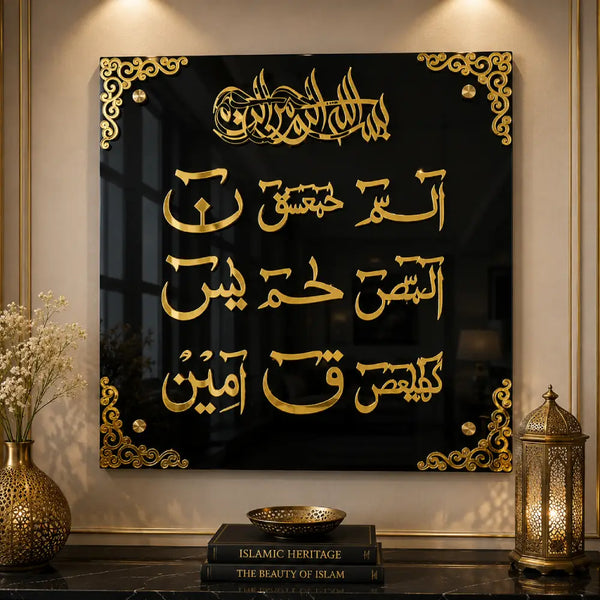 بسم الله
الم حمعسق ن
المص حم يس
كهيعص ق امين
ISLAMIC HERITAGE
THE BEAUTY OF ISLAM